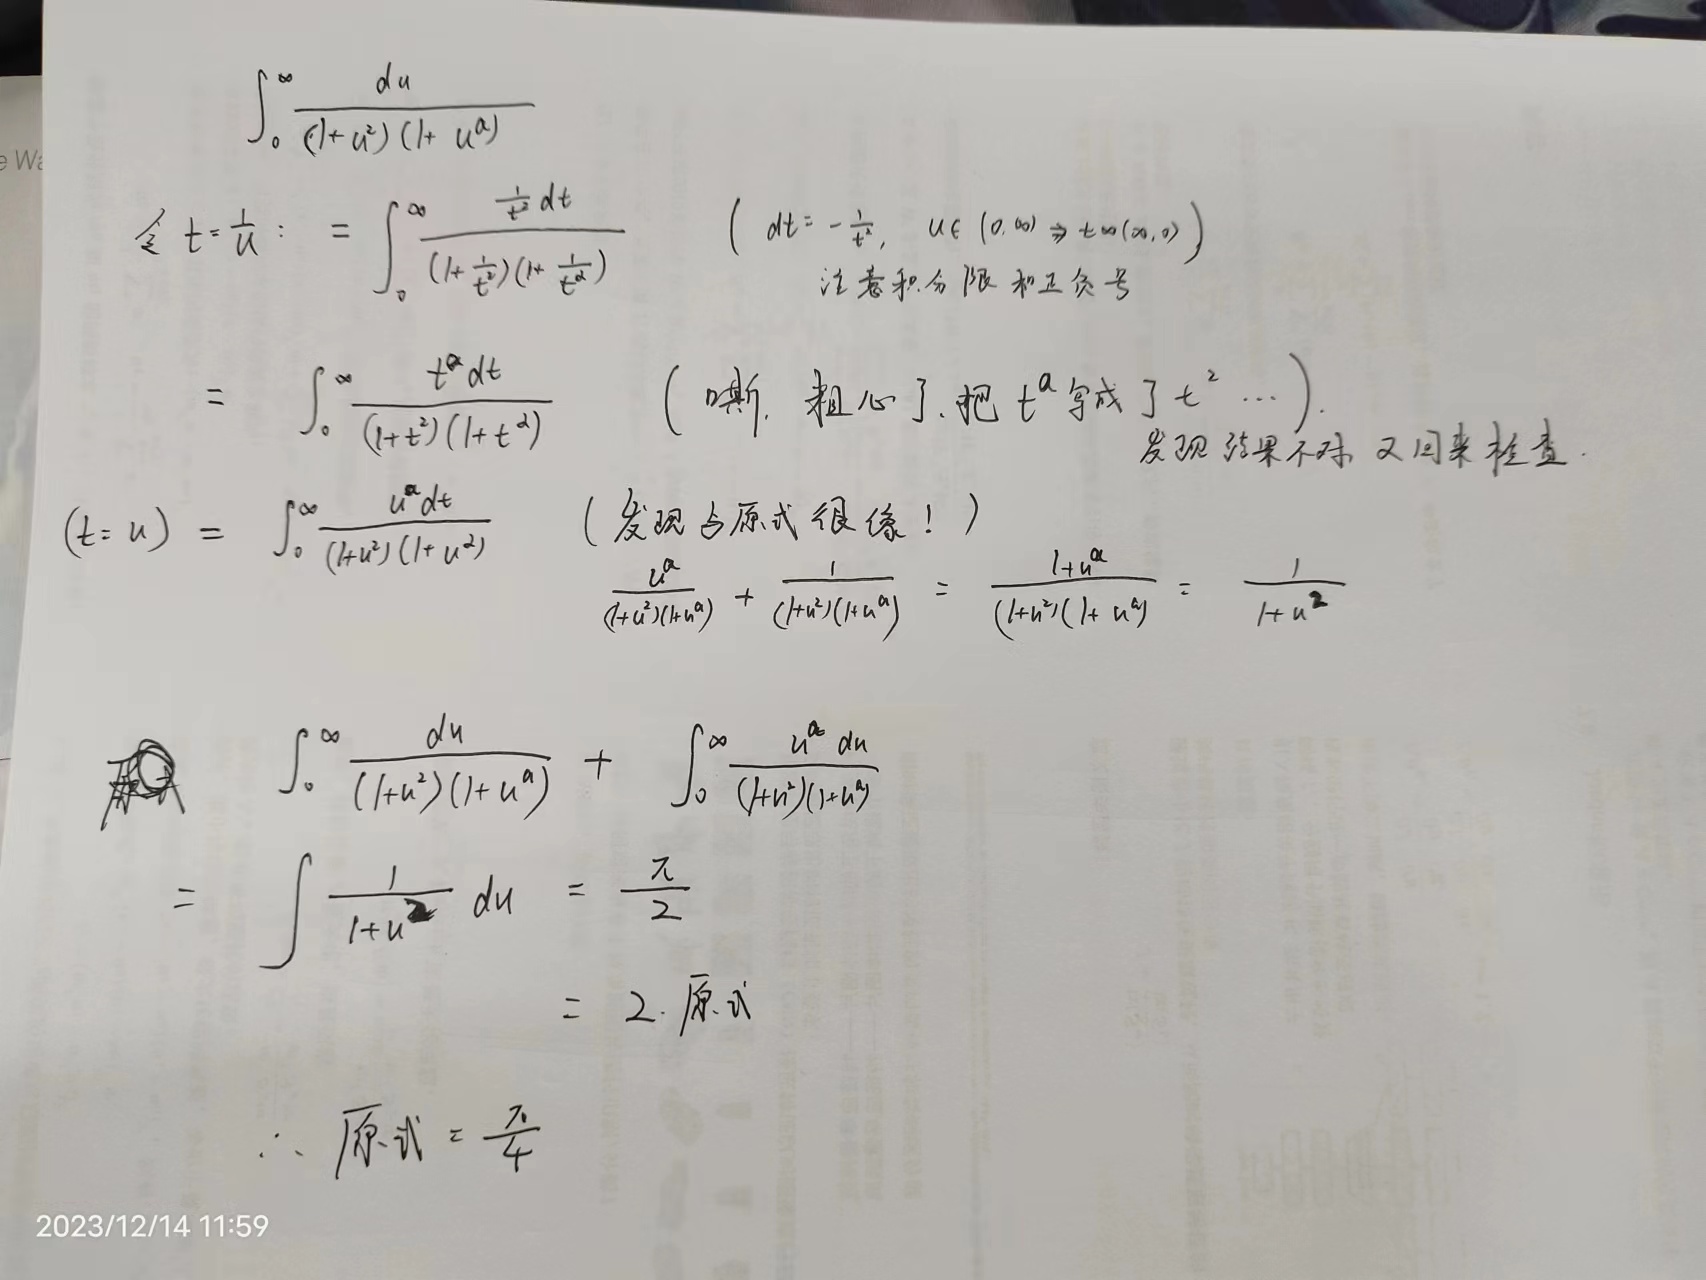 e Wa
∫₀^∞ du / (1+u²)(1+u^a)
令 t=1/u : = ∫₀^∞ (1/t²)dt / (1+1/t²)(1+1/t^a) ( dt = -1/t², u∈(0,∞) ⇒ t∞(∞,0) )
注意积分限和正负号
= ∫₀^∞ t^a dt / (1+t²)(1+t^a) (嘶,粗心了.把 t^a 写成了 t² …).
发现结果不对 又回来检查.
(t=u) = ∫₀^∞ u^a dt / (1+u²)(1+u²) (发现与原式很像!)
u^a / (1+u²)(1+u^a) + 1 / (1+u²)(1+u^a) = 1+u^a / (1+u²)(1+u^a) = 1 / 1+u²
∫₀^∞ du / (1+u²)(1+u^a) + ∫₀^∞ u^a du / (1+u²)(1+u^a)
= ∫ 1 / 1+u² du = π/2
= 2·原式
∴ 原式 = π/4
2023/12/14 11:59